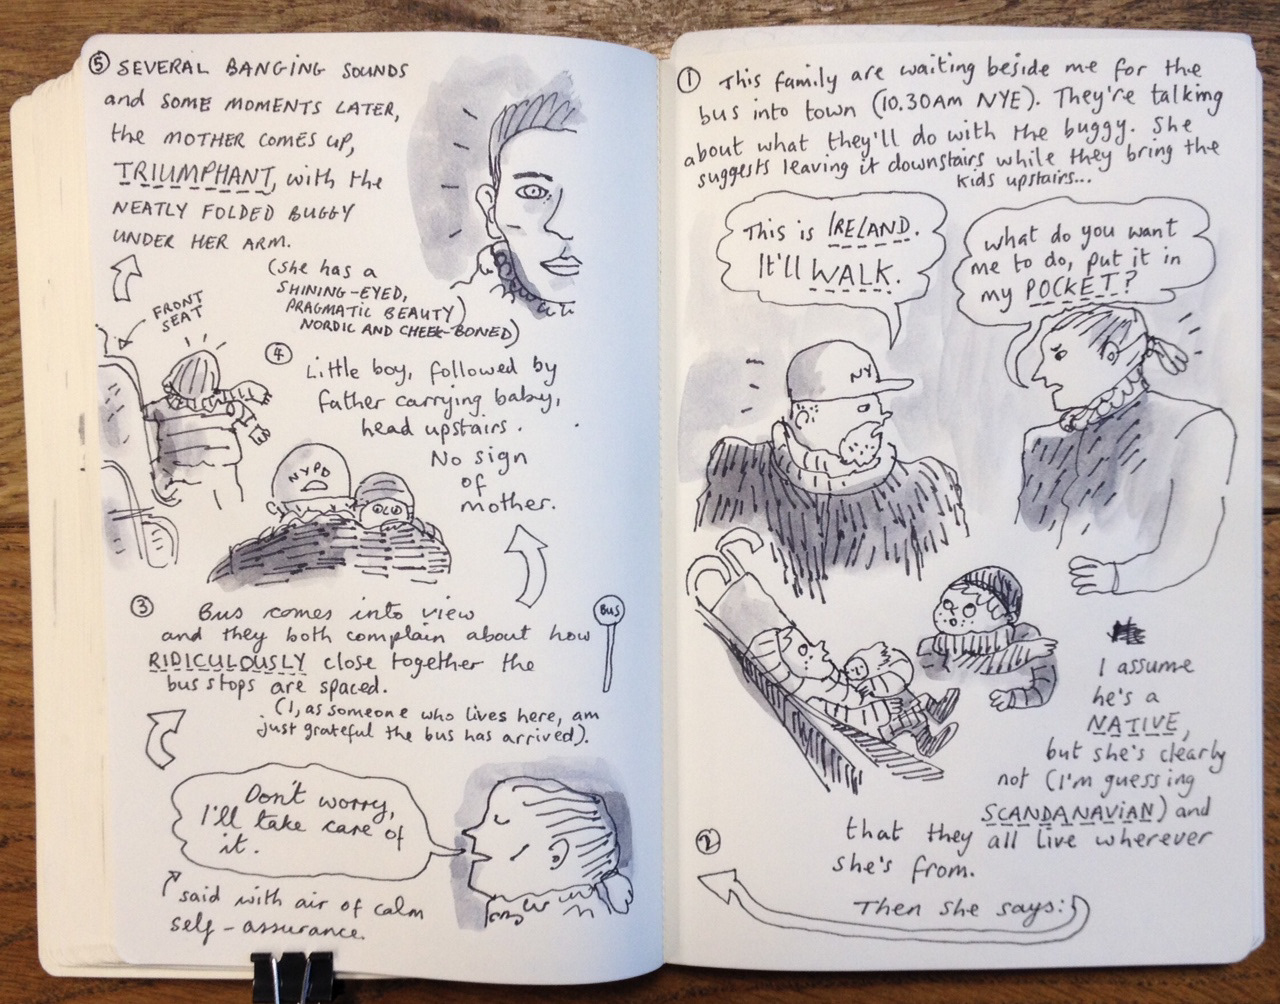 ① This family are waiting beside me for the
bus into town (10.30AM NYE). They're talking
about what they'll do with the buggy. She
suggests leaving it downstairs while they bring the
kids upstairs...
This is IRELAND.
It'll WALK.
What do you want
me to do, put it in
my POCKET?
NY
I assume
he's a
NATIVE,
but she's clearly
not (I'm guessing
SCANDANAVIAN) and
that they all live wherever
she's from.
Then she says:
②
Don't worry,
I'll take care of
it.
said with air of calm
self-assurance.
③ Bus comes into view
and they both complain about how
RIDICULOUSLY close together the
bus stops are spaced.
(I, as someone who lives here, am
just grateful the bus has arrived).
BUS
④ Little boy, followed by
father carrying baby,
head upstairs.
No sign
of
mother.
NYPD
FRONT
SEAT
⑤ SEVERAL BANGING SOUNDS
and SOME MOMENTS LATER,
the MOTHER COMES UP,
TRIUMPHANT, with the
NEATLY FOLDED BUGGY
UNDER HER ARM.
(she has a
SHINING-EYED,
PRAGMATIC BEAUTY)
NORDIC AND CHEEK-BONED)